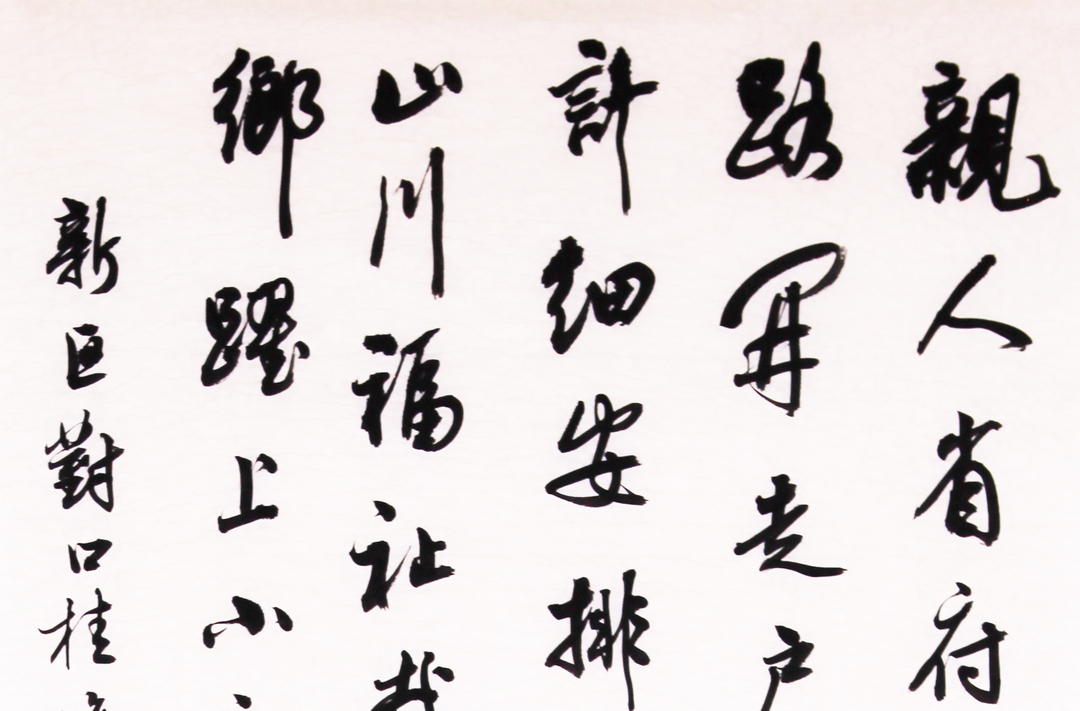 親人省府
路開走戶
計細安排
山川福祉
鄉躍上小
新巨對口桂